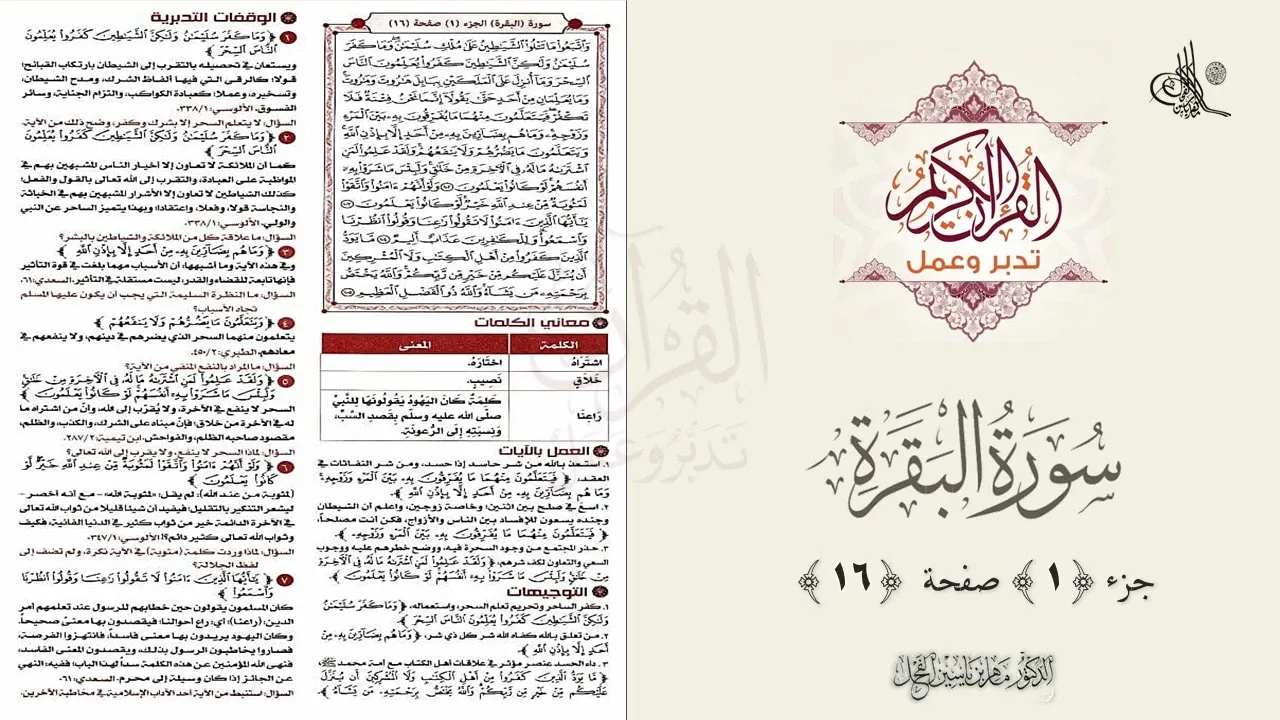 سورة (البقرة) الجزء (١) صفحة (١٦)
وَٱتَّبَعُوا۟ مَا تَتْلُوا۟ ٱلشَّيَٰطِينُ عَلَىٰ مُلْكِ سُلَيْمَٰنَ وَمَا كَفَرَ
سُلَيْمَٰنُ وَلَٰكِنَّ ٱلشَّيَٰطِينَ كَفَرُوا۟ يُعَلِّمُونَ ٱلنَّاسَ
ٱلسِّحْرَ وَمَآ أُنزِلَ عَلَى ٱلْمَلَكَيْنِ بِبَابِلَ هَٰرُوتَ وَمَٰرُوتَ
وَمَا يُعَلِّمَانِ مِنْ أَحَدٍ حَتَّىٰ يَقُولَآ إِنَّمَا نَحْنُ فِتْنَةٌ فَلَا
تَكْفُرْ فَيَتَعَلَّمُونَ مِنْهُمَا مَا يُفَرِّقُونَ بِهِۦ بَيْنَ ٱلْمَرْءِ
وَزَوْجِهِۦ وَمَا هُم بِضَآرِّينَ بِهِۦ مِنْ أَحَدٍ إِلَّا بِإِذْنِ ٱللَّهِ
وَيَتَعَلَّمُونَ مَا يَضُرُّهُمْ وَلَا يَنفَعُهُمْ وَلَقَدْ عَلِمُوا۟ لَمَنِ
ٱشْتَرَىٰهُ مَا لَهُۥ فِى ٱلْءَاخِرَةِ مِنْ خَلَٰقٍ وَلَبِئْسَ مَا شَرَوْا۟ بِهِۦٓ
أَنفُسَهُمْ لَوْ كَانُوا۟ يَعْلَمُونَ ١٠٢ وَلَوْ أَنَّهُمْ ءَامَنُوا۟ وَٱتَّقَوْا۟
لَمَثُوبَةٌ مِّنْ عِندِ ٱللَّهِ خَيْرٌ لَّوْ كَانُوا۟ يَعْلَمُونَ ١٠٣
يَٰٓأَيُّهَا ٱلَّذِينَ ءَامَنُوا۟ لَا تَقُولُوا۟ رَٰعِنَا وَقُولُوا۟ ٱنظُرْنَا
وَٱسْمَعُوا۟ وَلِلْكَٰفِرِينَ عَذَابٌ أَلِيمٌ ١٠٤ مَّا يَوَدُّ
ٱلَّذِينَ كَفَرُوا۟ مِنْ أَهْلِ ٱلْكِتَٰبِ وَلَا ٱلْمُشْرِكِينَ
أَن يُنَزَّلَ عَلَيْكُم مِّنْ خَيْرٍ مِّن رَّبِّكُمْ وَٱللَّهُ يَخْتَصُّ
بِرَحْمَتِهِۦ مَن يَشَآءُ وَٱللَّهُ ذُو ٱلْفَضْلِ ٱلْعَظِيمِ ١٠٥
معاني الكلمات
الكلمة المعنى
اشْتَرَاهُ اختَارَهُ.
خَلَاقٍ نَصِيبٍ.
رَاعِنَا كَلِمَةٌ كَانَ اليَهُودُ يَقُولُونَهَا لِلنَّبِيِّ
صلى الله عليه وسلم بِقَصدِ السَّبِّ،
وَنِسبَتِهِ إِلَى الرُّعونَةِ.
العمل بالآيات
١. استعذ بالله من شر حاسد إذا حسد، ومن شر النفاثات في
العقد، ﴿ فَيَتَعَلَّمُونَ مِنْهُمَا مَا يُفَرِّقُونَ بِهِۦ بَيْنَ ٱلْمَرْءِ وَزَوْجِهِۦ
وَمَا هُم بِضَآرِّينَ بِهِۦ مِنْ أَحَدٍ إِلَّا بِإِذْنِ ٱللَّهِ ﴾
٢. اسعَ في صلح بين اثنين؛ وخاصة زوجين، واعلم أن الشيطان
وجنده يسعون للإفساد بين الناس والأزواج، فكن أنت مصلحاً،
﴿ فَيَتَعَلَّمُونَ مِنْهُمَا مَا يُفَرِّقُونَ بِهِۦ بَيْنَ ٱلْمَرْءِ وَزَوْجِهِۦ ﴾
٣. حذر المجتمع من وجود السحرة فيه، ووضح خطرهم عليه ووجوب
السعي والتعاون لكف شرهم، ﴿ وَلَقَدْ عَلِمُوا۟ لَمَنِ ٱشْتَرَىٰهُ مَا لَهُۥ فِى ٱلْءَاخِرَةِ
مِنْ خَلَٰقٍ وَلَبِئْسَ مَا شَرَوْا۟ بِهِۦٓ أَنفُسَهُمْ لَوْ كَانُوا۟ يَعْلَمُونَ ﴾
التوجيهات
١. كفر الساحر وتحريم تعلم السحر، واستعماله، ﴿ وَمَا كَفَرَ سُلَيْمَٰنُ
وَلَٰكِنَّ ٱلشَّيَٰطِينَ كَفَرُوا۟ يُعَلِّمُونَ ٱلنَّاسَ ٱلسِّحْرَ ﴾
٢. من تعلق بالله كفاه شر كل ذي شر، ﴿ وَمَا هُم بِضَآرِّينَ بِهِۦ مِنْ
أَحَدٍ إِلَّا بِإِذْنِ ٱللَّهِ ﴾
٣. داء الحسد عنصر مؤثر في علاقات أهل الكتاب مع أمة محمد ﷺ،
﴿ مَّا يَوَدُّ ٱلَّذِينَ كَفَرُوا۟ مِنْ أَهْلِ ٱلْكِتَٰبِ وَلَا ٱلْمُشْرِكِينَ أَن يُنَزَّلَ
عَلَيْكُم مِّنْ خَيْرٍ مِّن رَّبِّكُمْ وَٱللَّهُ يَخْتَصُّ بِرَحْمَتِهِۦ مَن يَشَآءُ ﴾
الوقفات التدبرية
١ ﴿ وَمَا كَفَرَ سُلَيْمَٰنُ وَلَٰكِنَّ ٱلشَّيَٰطِينَ كَفَرُوا۟ يُعَلِّمُونَ
ٱلنَّاسَ ٱلسِّحْرَ ﴾
ويستعان في تحصيله بالتقرب إلى الشيطان بارتكاب القبائح؛
قولا؛ كالرقى التي فيها ألفاظ الشرك، ومدح الشيطان،
وتسخيره، وعملا؛ كعبادة الكواكب، والتزام الجناية، وسائر
الفسوق. الألوسي: ٣٣٨/١.
السؤال: لا يتعلم السحر إلا بشرك وكفر، وضح ذلك من الآية.
٢ ﴿ وَمَا كَفَرَ سُلَيْمَٰنُ وَلَٰكِنَّ ٱلشَّيَٰطِينَ كَفَرُوا۟ يُعَلِّمُونَ
ٱلنَّاسَ ٱلسِّحْرَ ﴾
كما أن الملائكة لا تعاون إلا أخيار الناس المشبهين بهم في
المواظبة على العبادة، والتقرب إلى الله تعالى بالقول والفعل؛
كذلك الشياطين لا تعاون إلا الأشرار المشبهين بهم في الخباثة
والنجاسة قولا، وفعلا، واعتقادا؛ وبهذا يتميز الساحر عن النبي
والولي. الألوسي: ٣٣٨/١.
السؤال: ما علاقة كل من الملائكة والشياطين بالبشر؟
٣ ﴿ وَمَا هُم بِضَآرِّينَ بِهِۦ مِنْ أَحَدٍ إِلَّا بِإِذْنِ ٱللَّهِ ﴾
وفي هذه الآية وما أشبهها: أن الأسباب مهما بلغت في قوة التأثير
فإنها تابعة للقضاء والقدر، ليست مستقلة في التأثير. السعدي: ٦١.
السؤال: ما النظرة السليمة التي يجب أن يكون عليها المسلم
تجاه الأسباب؟
٤ ﴿ وَيَتَعَلَّمُونَ مَا يَضُرُّهُمْ وَلَا يَنفَعُهُمْ ﴾
يتعلمون منهما السحر الذي يضرهم في دينهم، ولا ينفعهم في
معادهم. الطبري: ٤٥٠/٢.
السؤال: ما المراد بالنفع المنفي من الآية؟
٥ ﴿ وَلَقَدْ عَلِمُوا۟ لَمَنِ ٱشْتَرَىٰهُ مَا لَهُۥ فِى ٱلْءَاخِرَةِ مِنْ خَلَٰقٍ
وَلَبِئْسَ مَا شَرَوْا۟ بِهِۦٓ أَنفُسَهُمْ لَوْ كَانُوا۟ يَعْلَمُونَ ﴾
السحر لا ينفع في الآخرة، ولا يُقرّب إلى الله، وأنّ من اشتراه ما
له في الآخرة من خلاق؛ فإنّ مبناه على الشرك، والكذب، والظلم،
مقصود صاحبه الظلم، والفواحش. ابن تيمية: ٢٨٧/٢.
السؤال: لماذا السحر لا ينفع، ولا يقرب إلى الله تعالى؟
٦ ﴿ وَلَوْ أَنَّهُمْ ءَامَنُوا۟ وَٱتَّقَوْا۟ لَمَثُوبَةٌ مِّنْ عِندِ ٱللَّهِ خَيْرٌ لَّوْ
كَانُوا۟ يَعْلَمُونَ ﴾
(لمثوبة من عند الله): لم يقل: «لمثوبة الله» - مع أنه أخصر -
ليشعر التنكير بالتقليل؛ فيفيد أن شيئا قليلا من ثواب الله تعالى
في الآخرة الدائمة خير من ثواب كثير في الدنيا الفانية، فكيف
وثواب الله تعالى كثير دائم؟! الألوسي: ٣٤٧/١.
السؤال: لماذا وردت كلمة (مثوبة) في الآية نكرة، ولم تضف إلى
لفظ الجلالة؟
٧ ﴿ يَٰٓأَيُّهَا ٱلَّذِينَ ءَامَنُوا۟ لَا تَقُولُوا۟ رَٰعِنَا وَقُولُوا۟ ٱنظُرْنَا
وَٱسْمَعُوا۟ ﴾
كان المسلمون يقولون حين خطابهم للرسول عند تعلمهم أمر
الدين: (راعنا)؛ أي: راع أحوالنا؛ فيقصدون بها معنىً صحيحاً.
وكان اليهود يريدون بها معنى فاسداً، فانتهزوا الفرصة،
فصاروا يخاطبون الرسول بذلك، ويقصدون المعنى الفاسد،
فنهى الله المؤمنين عن هذه الكلمة سداً لهذا الباب؛ ففيه: النهي
عن الجائز إذا كان وسيلة إلى محرم. السعدي: ٦١.
السؤال: استنبط من الآية أحد الآداب الإسلامية في مخاطبة الآخرين.
القرآن الكريم
تدبر وعمل
سُورَةُ البَقَرَة
جزء ﴿ ١ ﴾ صفحة ﴿ ١٦ ﴾
الدكتور ماهر بن ياسين الفحل
القرآن
تَدَبُّر وَعَمَل